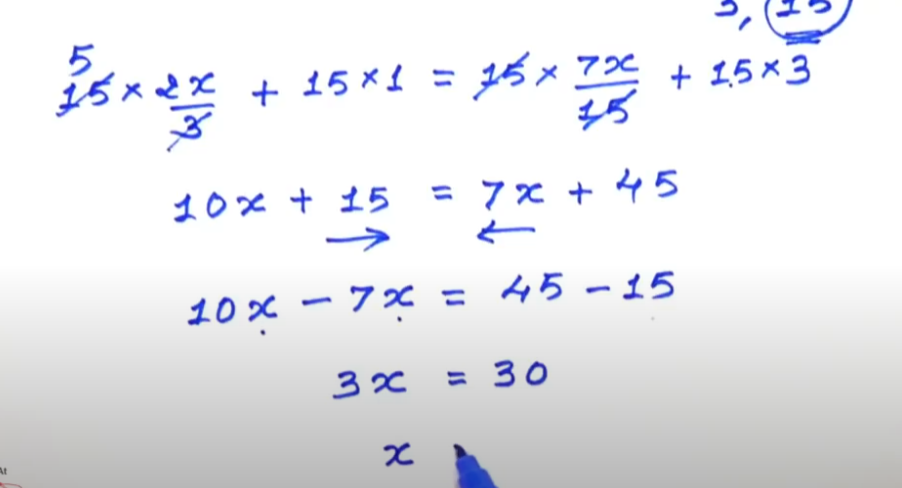 3, 15
5
15 × 2x/3 + 15 × 1 = 15 × 7x/15 + 15 × 3
10x + 15 = 7x + 45
→ ←
10x - 7x = 45 - 15
3x = 30
x
At